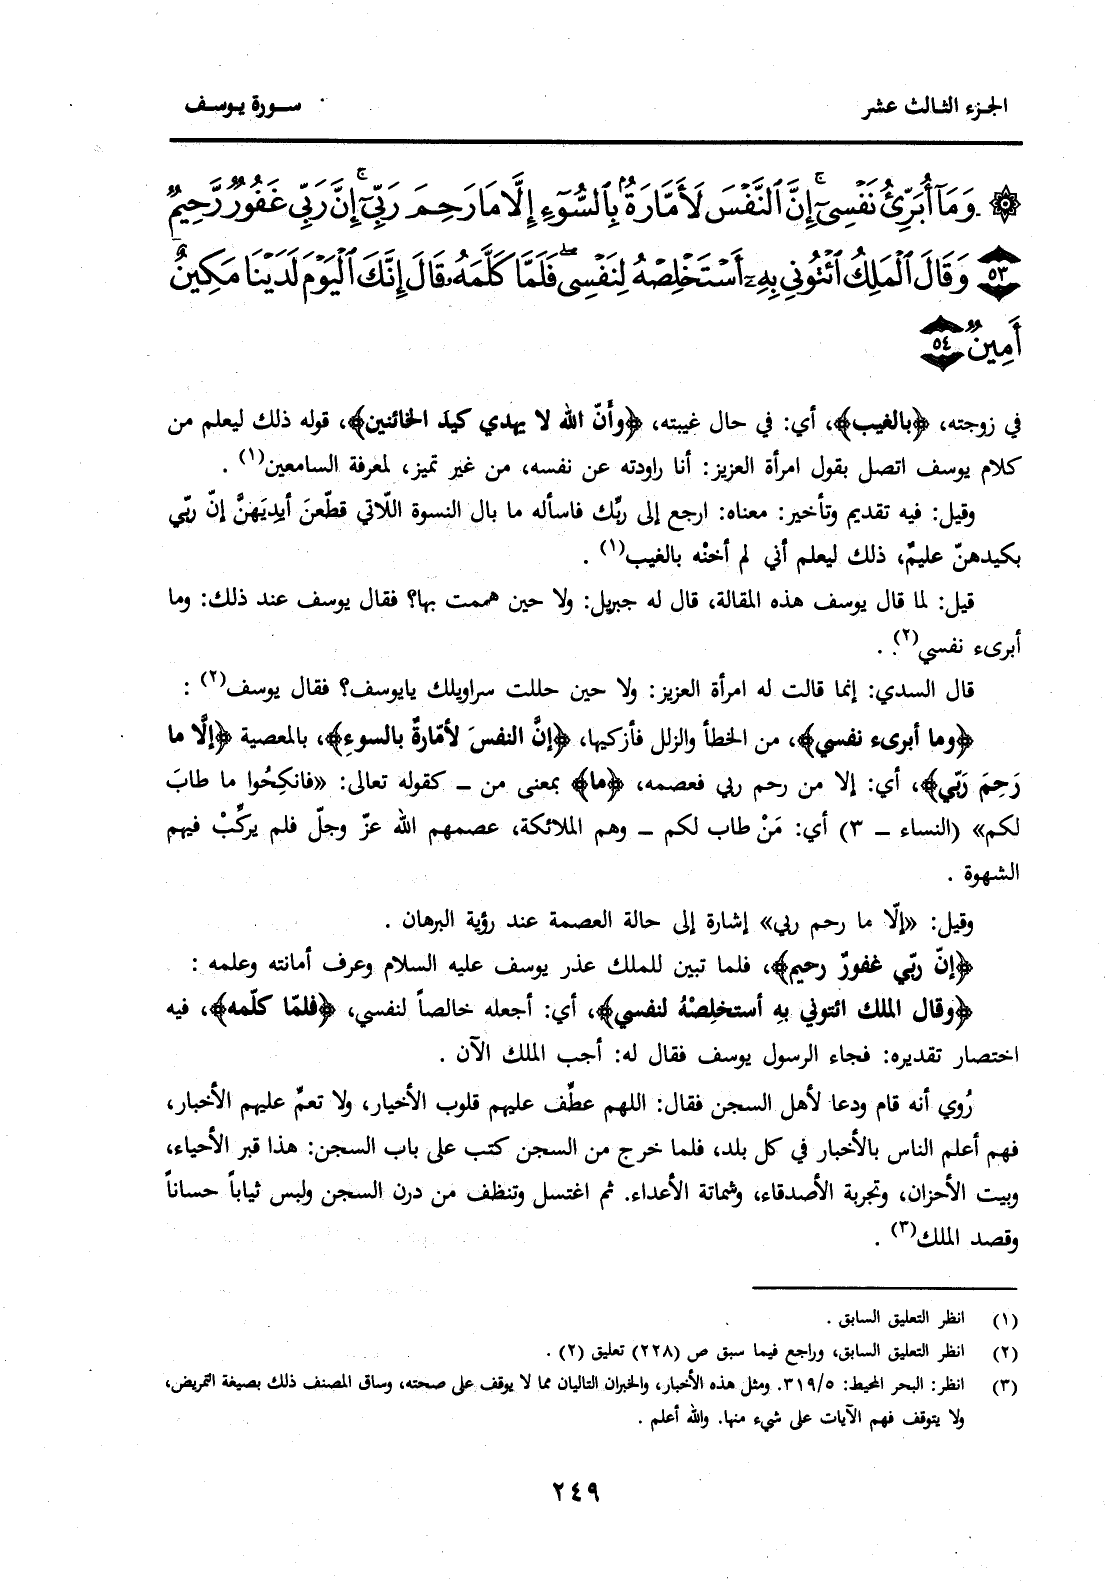 الجزء الثالث عشر
سورة يوسف
۞ وَمَآ أُبَرِّئُ نَفْسِىٓ ۚ إِنَّ ٱلنَّفْسَ لَأَمَّارَةٌۢ بِٱلسُّوٓءِ إِلَّا مَا رَحِمَ رَبِّىٓ ۚ إِنَّ رَبِّى غَفُورٌ رَّحِيمٌ
٥٣ وَقَالَ ٱلْمَلِكُ ٱئْتُونِى بِهِۦٓ أَسْتَخْلِصْهُ لِنَفْسِى ۖ فَلَمَّا كَلَّمَهُۥ قَالَ إِنَّكَ ٱلْيَوْمَ لَدَيْنَا مَكِينٌ
أَمِينٌ ٥٤
في زوجته، ﴿بالغيب﴾، أي: في حال غيبته، ﴿وأنّ الله لا يهدي كيدَ الخائنين﴾، قوله ذلك ليعلم من
كلام يوسف اتصل بقول امرأة العزيز: أنا راودته عن نفسه، من غير تميز، لمعرفة السامعين(١) .
وقيل: فيه تقديم وتأخير: معناه: ارجع إلى ربِّك فاسأله ما بال النسوة اللّاتي قطّعنَ أيدِيَهنَّ إنّ ربِّي
بكيدهنّ عليمٌ، ذلك ليعلم أني لم أخنْه بالغيب(١) .
قيل: لما قال يوسف هذه المقالة، قال له جبريل: ولا حين هممت بها؟ فقال يوسف عند ذلك: وما
أبرىء نفسي(٢) .
قال السدي: إنما قالت له امرأة العزيز: ولا حين حللت سراويلك يايوسف؟ فقال يوسف(٢) :
﴿وما أبرىء نفسي﴾، من الخطأ والزلل فأزكيها، ﴿إنَّ النفسَ لأمّارةٌ بالسوءِ﴾، بالمعصية ﴿إلَّا ما
رَحِمَ رَبّي﴾، أي: إلا من رحم ربي فعصمه، ﴿ما﴾ بمعنى من ـ كقوله تعالى: «فانكِحُوا ما طابَ
لكم» (النساء ـ ٣) أي: مَنْ طاب لكم ـ وهم الملائكة، عصمهم الله عزّ وجلّ فلم يركِّبْ فيهم
الشهوة .
وقيل: «إلّا ما رحم ربي» إشارة إلى حالة العصمة عند رؤية البرهان .
﴿إنّ ربّي غفورٌ رحيم﴾، فلما تبين للملك عذر يوسف عليه السلام وعرف أمانته وعلمه :
﴿وقال الملك ائتوني بهِ أستخلِصْهُ لنفسي﴾، أي: أجعله خالصاً لنفسي، ﴿فلمّا كلّمه﴾، فيه
اختصار تقديره: فجاء الرسول يوسف فقال له: أجب الملك الآن .
رُوي أنه قام ودعا لأهل السجن فقال: اللهم عطِّف عليهم قلوب الأخيار، ولا تعمِّ عليهم الأخبار،
فهم أعلم الناس بالأخبار في كل بلد، فلما خرج من السجن كتب على باب السجن: هذا قبر الأحياء،
وبيت الأحزان، وتجربة الأصدقاء، وشماتة الأعداء. ثم اغتسل وتنظف من درن السجن ولبس ثياباً حساناً
وقصد الملك(٣) .
(١) انظر التعليق السابق .
(٢) انظر التعليق السابق، وراجع فيما سبق ص (٢٢٨) تعليق (٢) .
(٣) انظر: البحر المحيط: ٣١٩/٥. ومثل هذه الأخبار، والخبران التاليان مما لا يوقف على صحته، وساق المصنف ذلك بصيغة التمريض،
ولا يتوقف فهم الآيات على شيء منها. والله أعلم .
٢٤٩